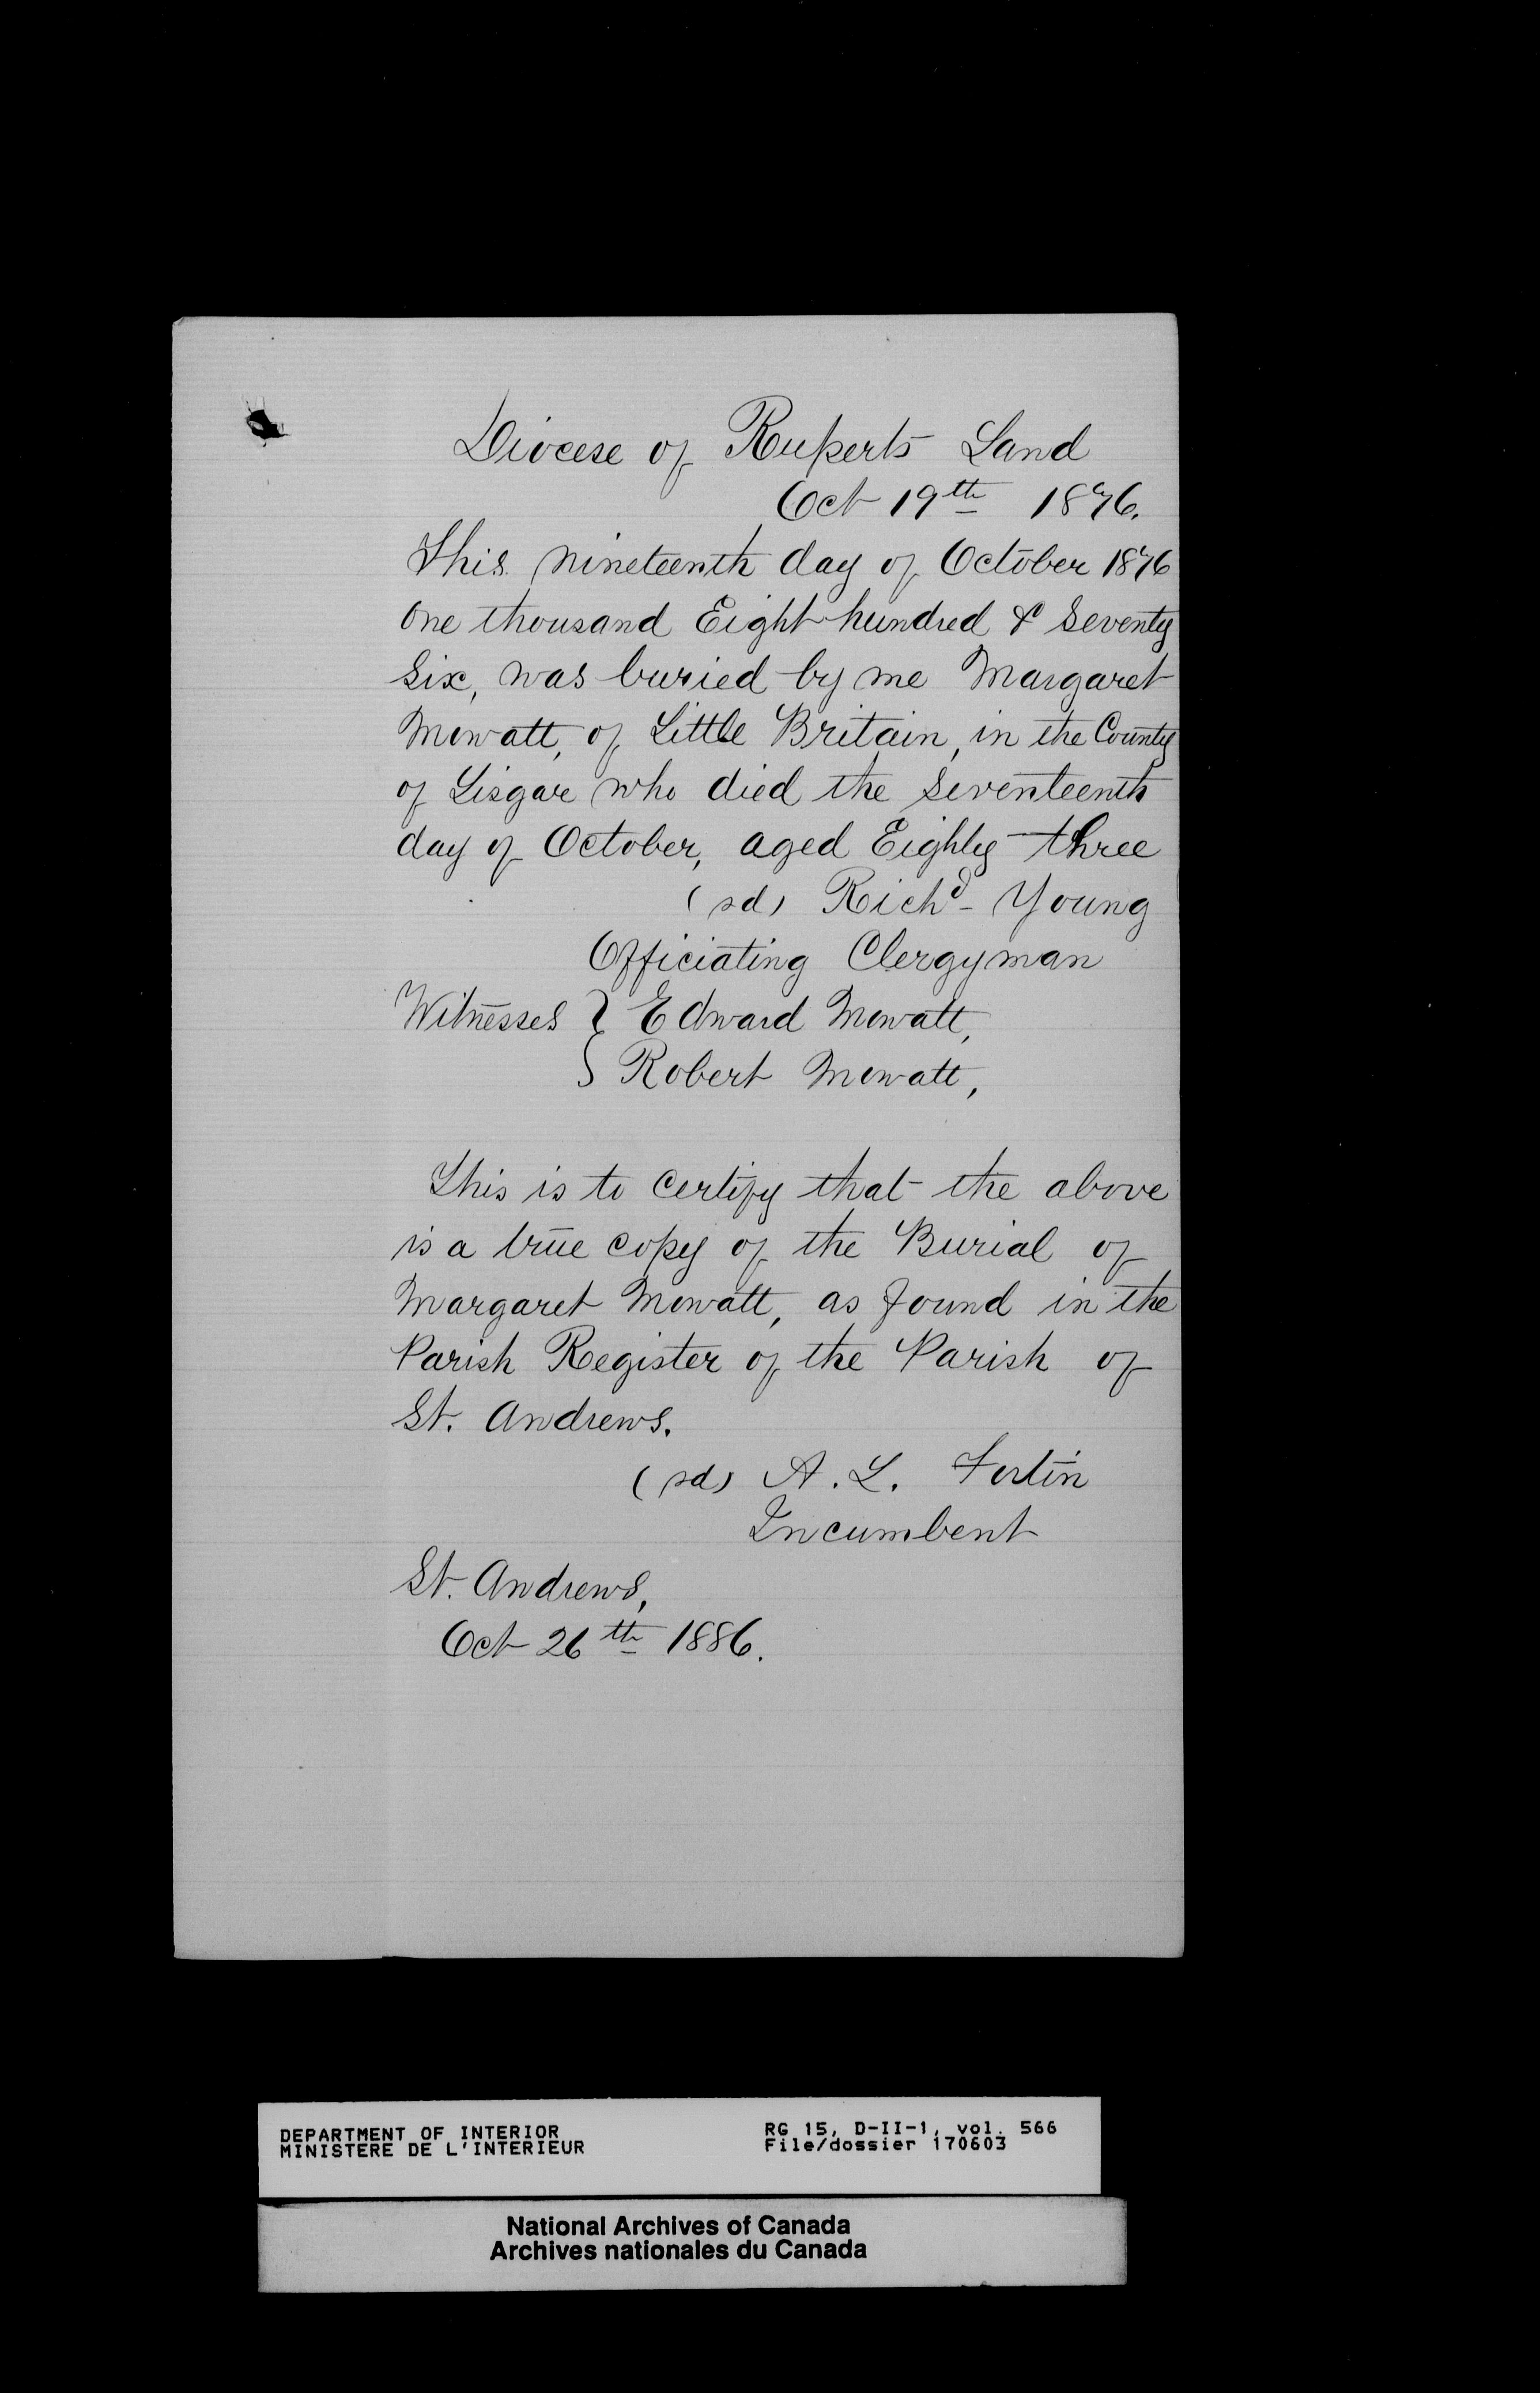 Diocese of Ruperts Land
Oct 19th 1876.
This nineteenth day of October 1876
One thousand Eight hundred & Seventy
Six, was buried by me Margaret
Mowatt, of Little Britain, in the County
of Lisgar who died the Seventeenth
day of October, aged Eighty-three
(sd) Richd. Young
Officiating Clergyman
Witnesses } Edward Mowatt,
} Robert Mowatt,
This is to certify that the above
is a true copy of the Burial of
Margaret Mowatt, as found in the
Parish Register of the Parish of
St. Andrews.
(sd) A. L. Fortin
Incumbent
St. Andrews,
Oct 26th 1886.
DEPARTMENT OF INTERIOR RG 15, D-II-1, vol. 566
MINISTERE DE L'INTERIEUR File/dossier 170603
National Archives of Canada
Archives nationales du Canada